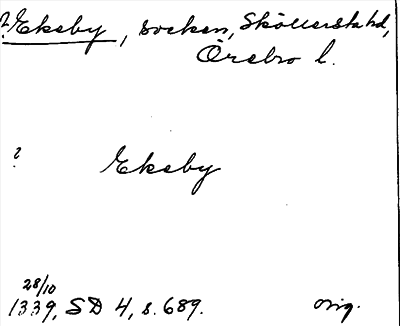 ?Ekeby, socken, Sköllersta hd,
Örebro l.
? Ekeby
28/10
1339, SD 4, s. 689. orig.